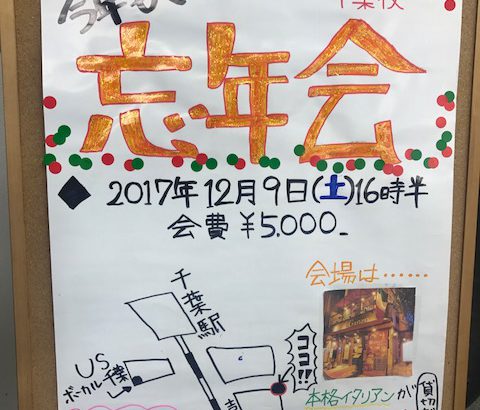 千葉校
忘年会
◆ 2017年12月9日(土)16時半
会費 ¥5.000_
会場は……
千葉駅
ココ!!
US
ボーカル千葉
吉
本格イタリアンが
貸切